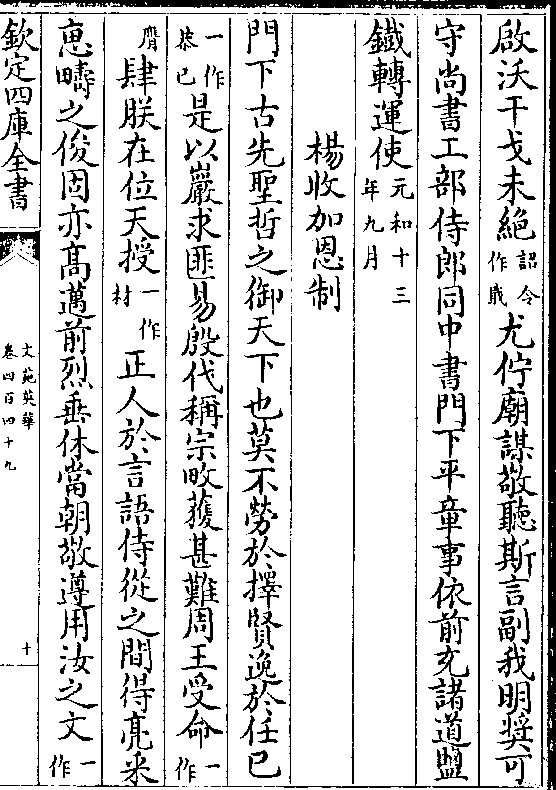 啟沃干戈未絶詔令作戢尤佇廟謀敬聽斯言副我明奬可
守尚書工部侍郎同中書門下平章事依前充諸道鹽
鐵轉運使元和十三年九月
楊收加恩制
門下古先聖哲之御天下也莫不勞於擇賢逸於任已
一作恭已是以嚴求匪易殷代稱宗畋獲甚難周王受命一作
膺肆朕在位天授一作材正人於言語侍從之間得亮采
惠疇之俊固亦高邁前烈垂休當朝敬遵用汝之文一作
欽定四庫全書
文苑英華
卷四百四十九
十